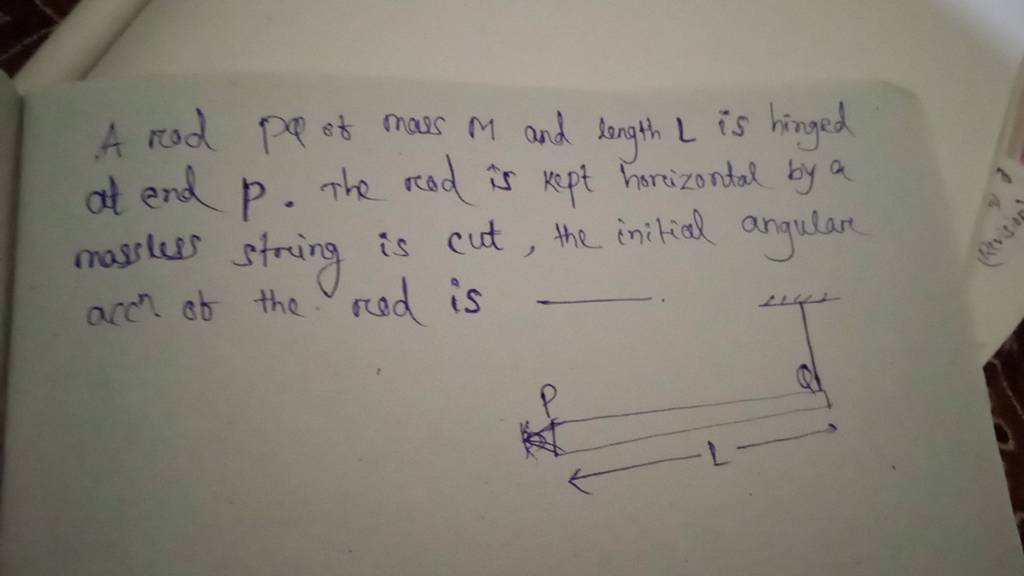 A rod PQ of mass M and length L is hinged
at end P. The rod is kept horizontal by a
massless string is cut, the initial angular
accn of the rod is ______.
P
Q
L
(Revision)